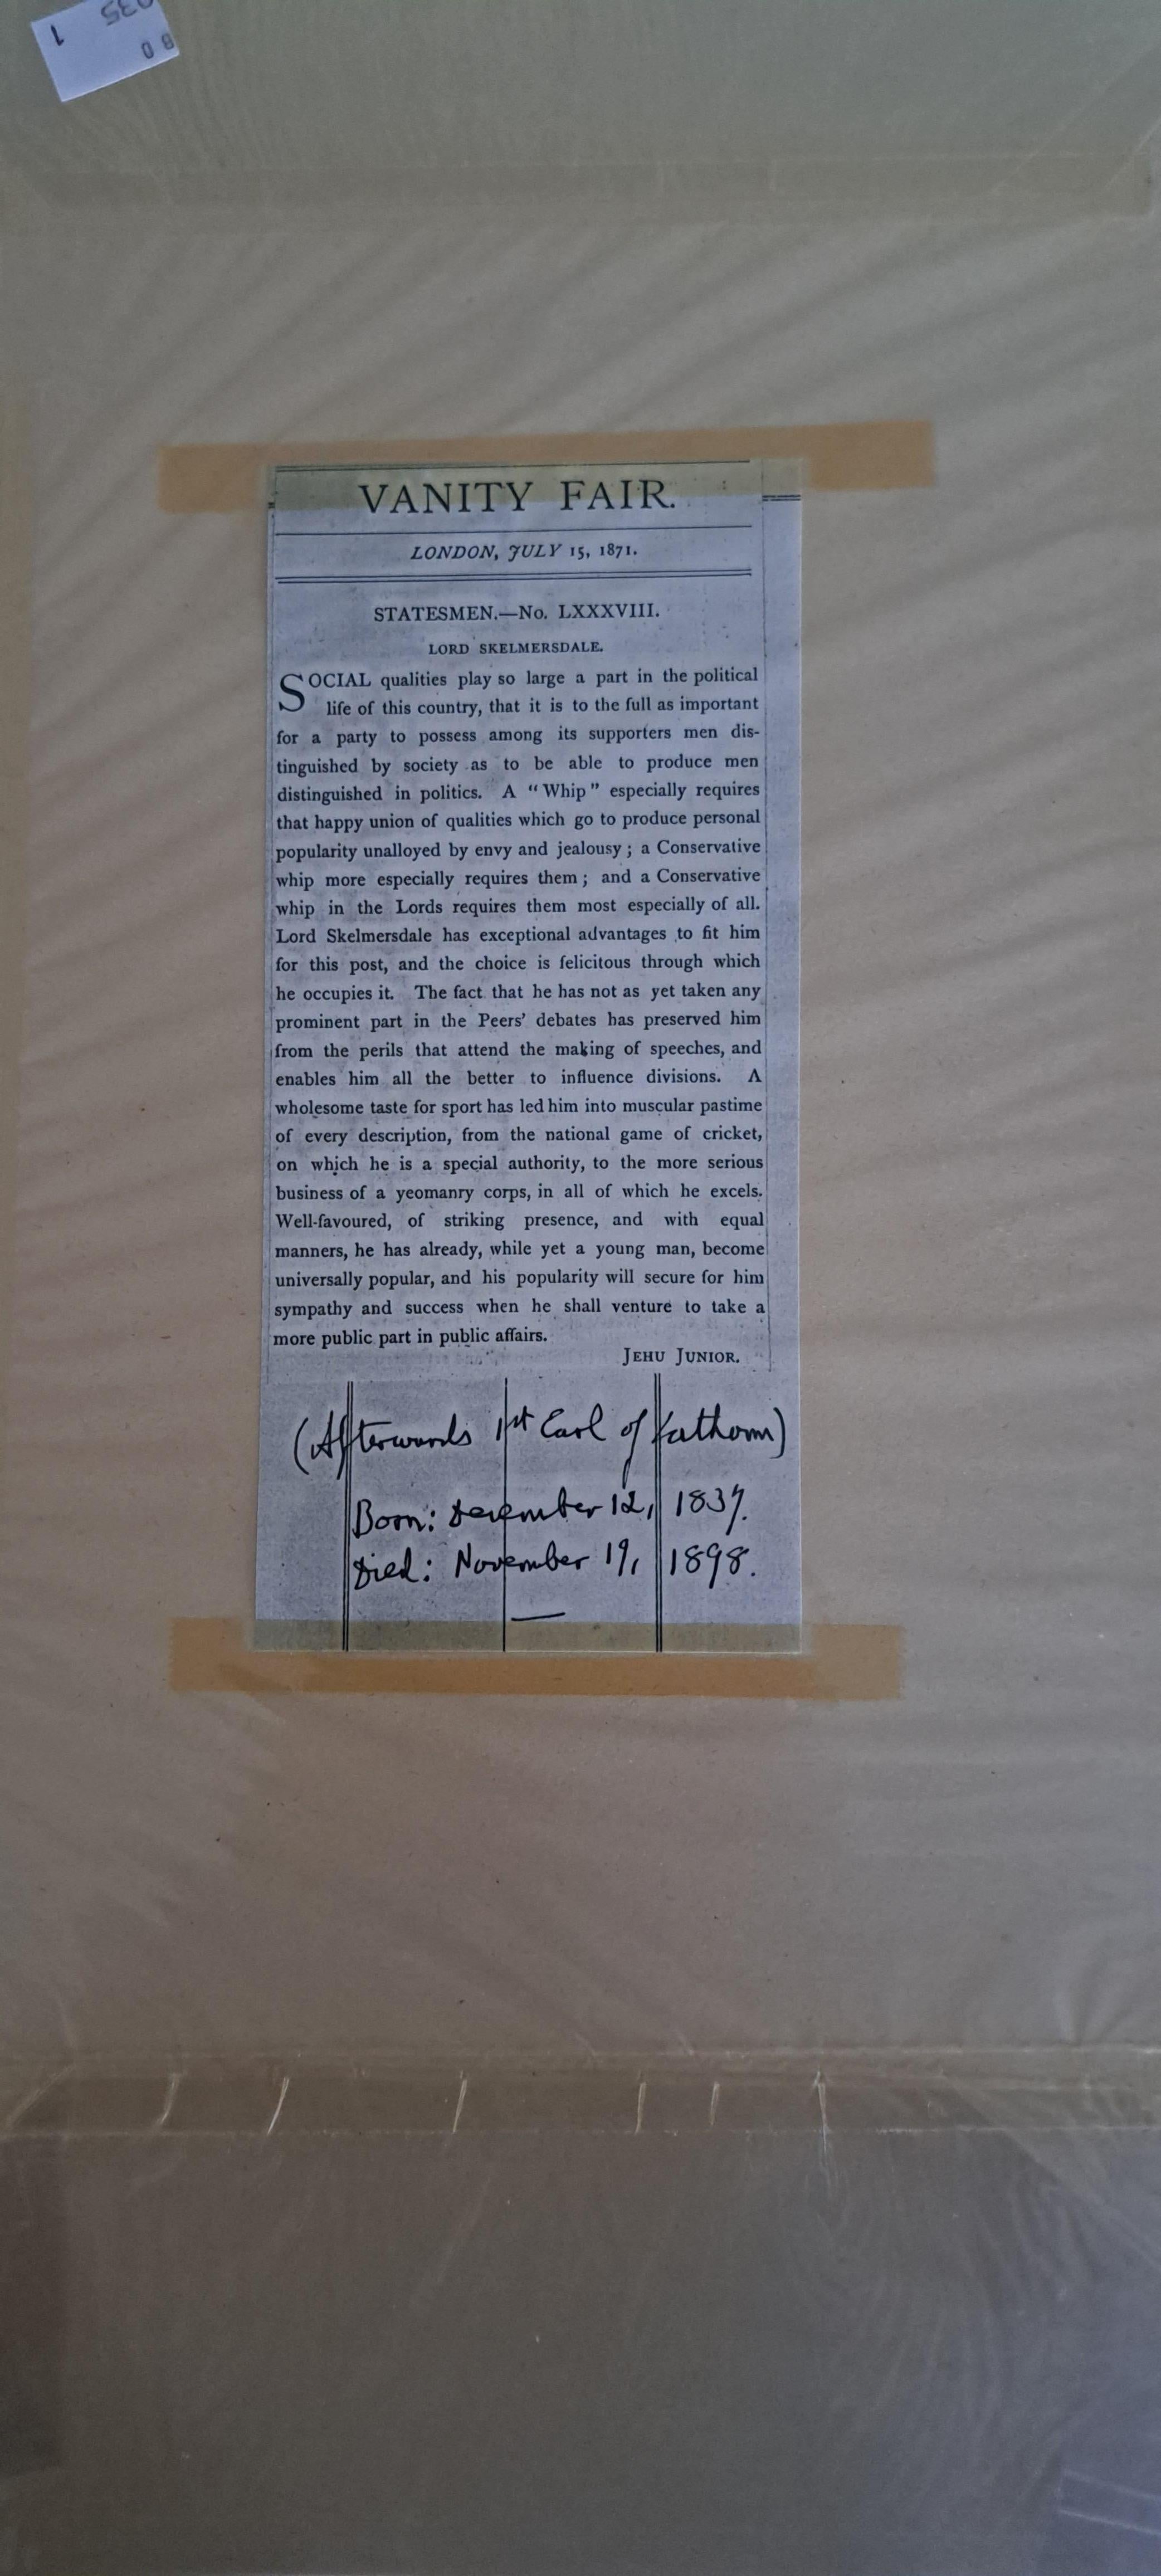 035
1
08
VANITY FAIR.
LONDON, JULY 15, 1871.
STATESMEN.—No. LXXXVIII.
LORD SKELMERSDALE.
SOCIAL qualities play so large a part in the political
life of this country, that it is to the full as important
for a party to possess among its supporters men dis-
tinguished by society as to be able to produce men
distinguished in politics. A “Whip” especially requires
that happy union of qualities which go to produce personal
popularity unalloyed by envy and jealousy; a Conservative
whip more especially requires them; and a Conservative
whip in the Lords requires them most especially of all.
Lord Skelmersdale has exceptional advantages to fit him
for this post, and the choice is felicitous through which
he occupies it. The fact that he has not as yet taken any
prominent part in the Peers’ debates has preserved him
from the perils that attend the making of speeches, and
enables him all the better to influence divisions. A
wholesome taste for sport has led him into muscular pastime
of every description, from the national game of cricket,
on which he is a special authority, to the more serious
business of a yeomanry corps, in all of which he excels.
Well-favoured, of striking presence, and with equal
manners, he has already, while yet a young man, become
universally popular, and his popularity will secure for him
sympathy and success when he shall venture to take a
more public part in public affairs.
JEHU JUNIOR.
(Afterwards 1st Earl of Lathom)
Born: December 12, 1837.
Died: November 19, 1898.